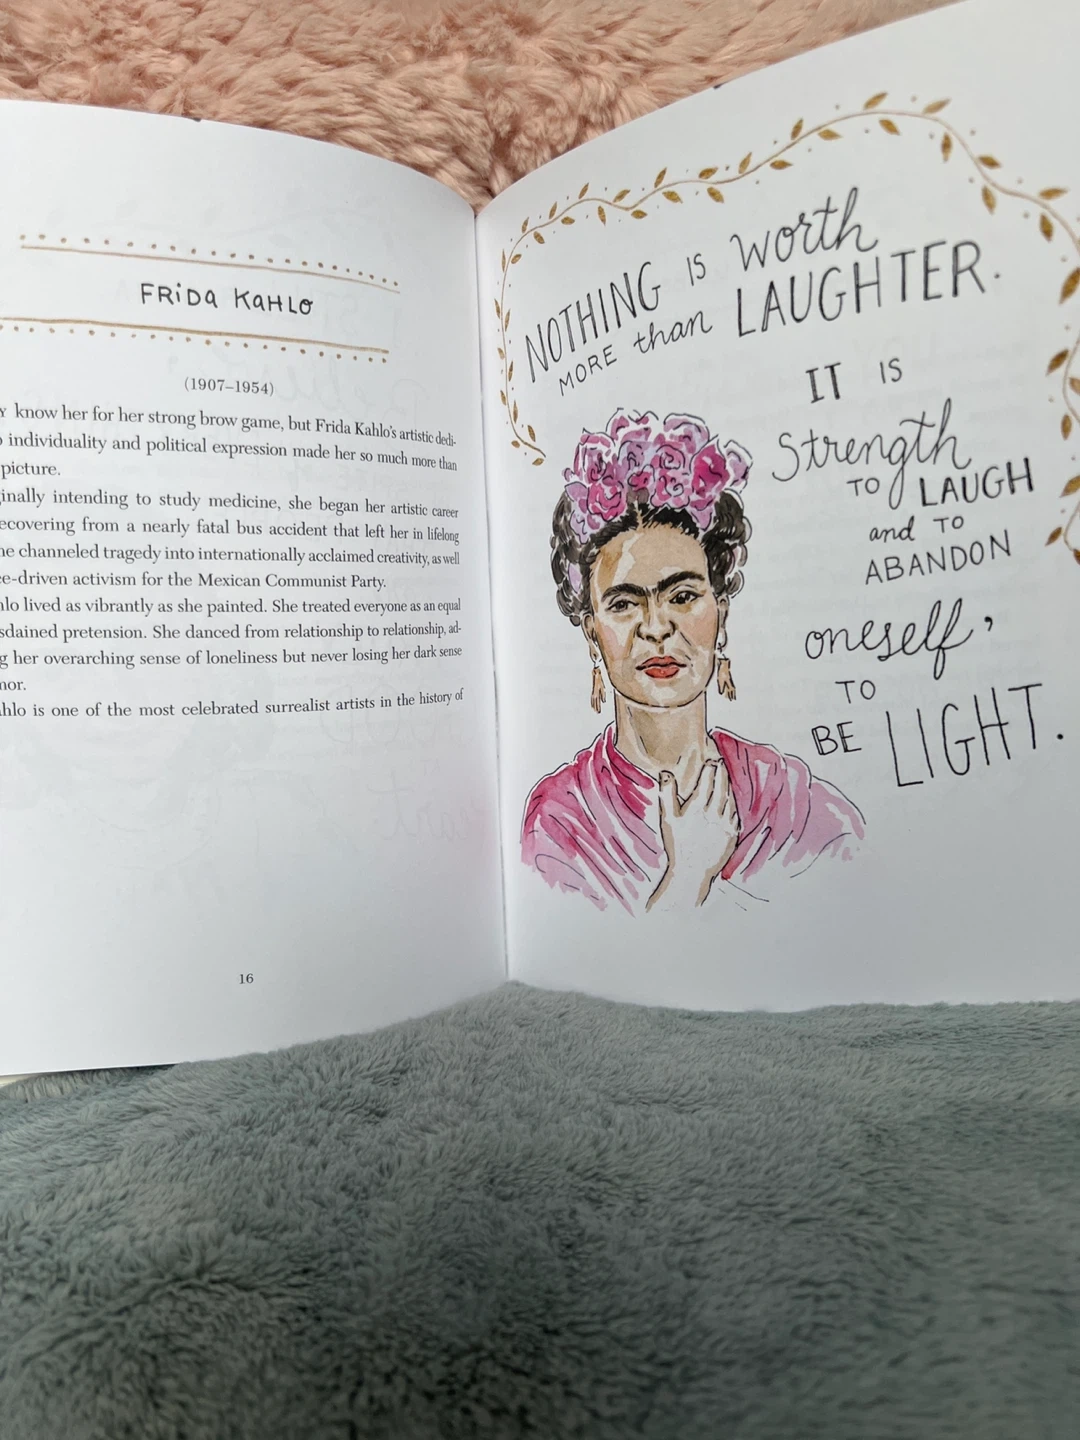 FRIDA KAHLO
(1907–1954)
know her for her strong brow game, but Frida Kahlo's artistic dedi-
individuality and political expression made her so much more than
picture.
intending to study medicine, she began her artistic career
from a nearly fatal bus accident that left her in lifelong
channeled tragedy into internationally acclaimed creativity, as well
-driven activism for the Mexican Communist Party.
lived as vibrantly as she painted. She treated everyone as an equal
pretension. She danced from relationship to relationship, ad-
her overarching sense of loneliness but never losing her dark sense
is one of the most celebrated surrealist artists in the history of
16
NOTHING IS worth
MORE than LAUGHTER.
IT IS
Strength
TO LAUGH
and TO
ABANDON
oneself,
TO
BE LIGHT.